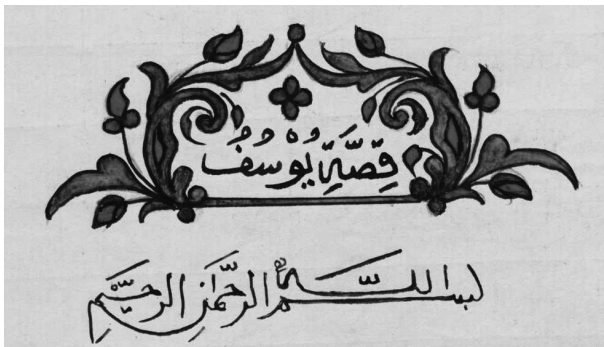 قِصَّةِ يُوْسُفُ
بسم الله الرَّحْمَٰنِ الرَّحِيْمِ